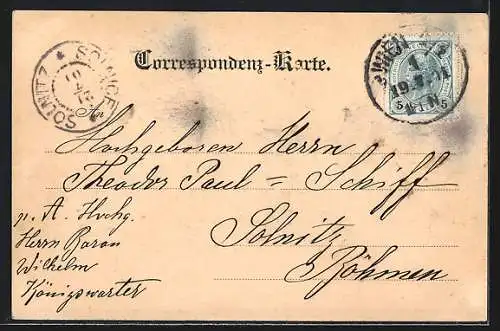 Correspondenz-Karte.
SOLNICE
SOLNITZ
WIEN
1
5
5
An
Hochgeboren Herrn
Theodor Paul = Schiff
Solnitz
Böhmen
p. A. Hochg.
Herrn Baron
Wilhelm
Königswarter